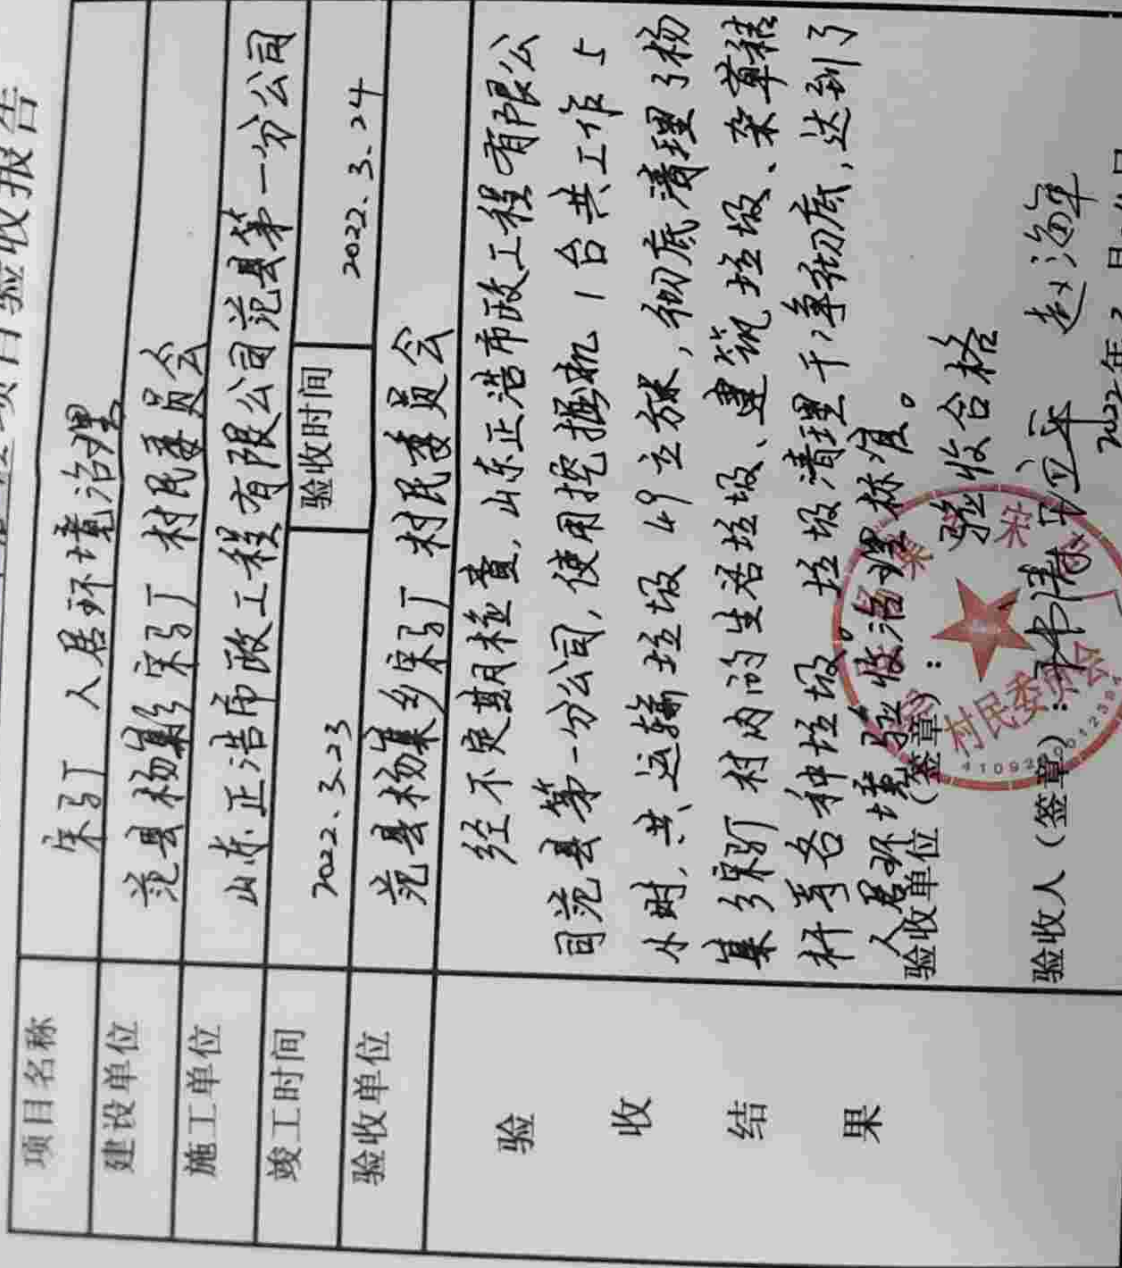 项目验收报告
项目名称 宋马丁 人居环境治理
建设单位 范县杨集乡宋马丁 村民委员会
施工单位 山东正浩市政工程有限公司范县第一分公司
竣工时间 2022.3.23 验收时间 2022.3.24
验收单位 范县杨集乡宋马丁 村民委员会
验收结果
经不定期检查,山东正浩市政工程有限公
司范县第一分公司,使用挖掘机 1 台共工作 5
小时,共运输垃圾 49 立方米,彻底清理了杨
集乡宋马丁 村内的生活垃圾、建筑垃圾、杂草秸
秆等各种垃圾。垃圾清理干净彻底,达到了
人居环境验收治理标准。
验收单位(签章): 验收合格
村民委员会
验收人(签章): 赵海军
2022年3月